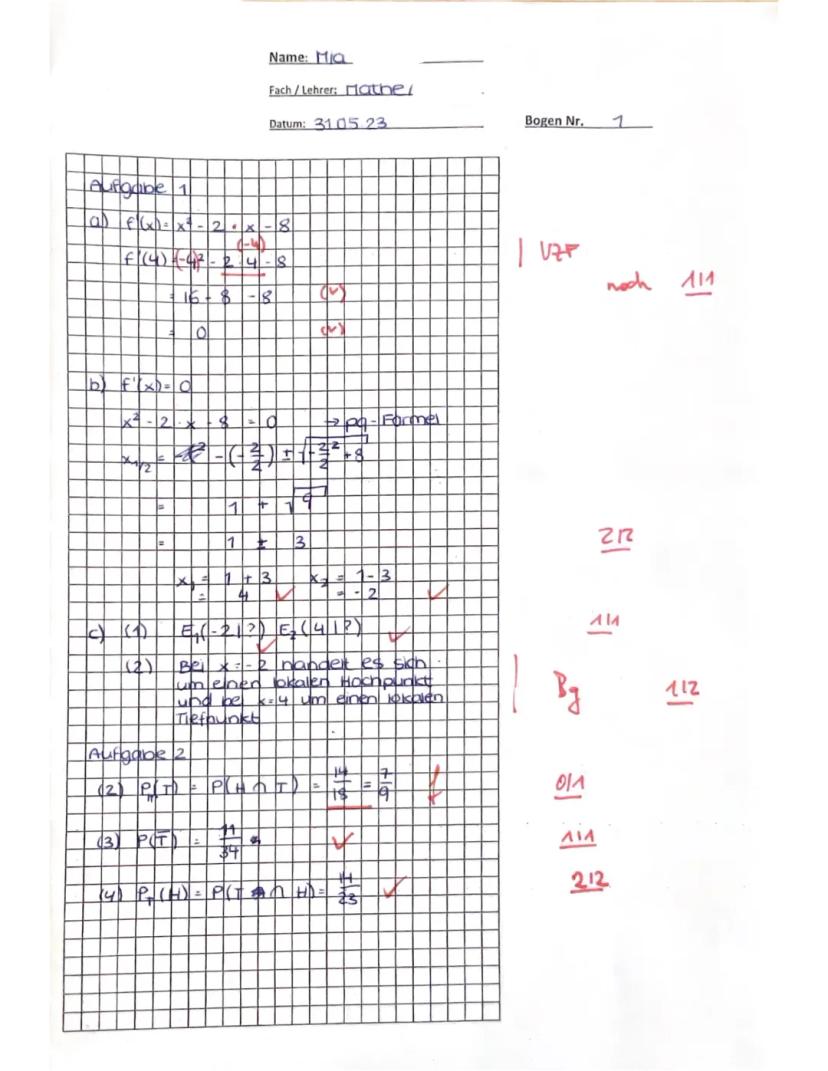 Name: Mia
Fach / Lehrer: Mathe/
Datum: 31.05.23
Bogen Nr. 1
Aufgabe 1
a) f'(x) = x² - 2 · x - 8
(-4)
f'(4) = (-4)² - 2 · 4 - 8 | VZF
= 16 - 8 - 8 (✓) noch 1/1
= 0 (✓)
b) f'(x) = 0
x² - 2 · x - 8 = 0 → pq-Formel
x₁/₂ = - (- 2/2) ± √(- 2/2 ² + 8)
= 1 + √9
= 1 ± 3 2/2
x₁ = 1 + 3 x₂ = 1 - 3
= 4 ✓ = -2 ✓
c) (1) E₁(-2|?) E₂(4|?) ✓ 1/1
(2) Bei x = -2 handelt es sich
um einen lokalen Hochpunkt | Bg 1/2
und bei x=4 um einen lokalen
Tiefpunkt
Aufgabe 2
(2) P_H(T) = P(H ∩ T) = 14/18 = 7/9 f 0/1
(3) P(T̅) = 11/34 ✓ 1/1
(4) P_T(H) = P(T ∩ H) = 14/23 ✓ 2/2